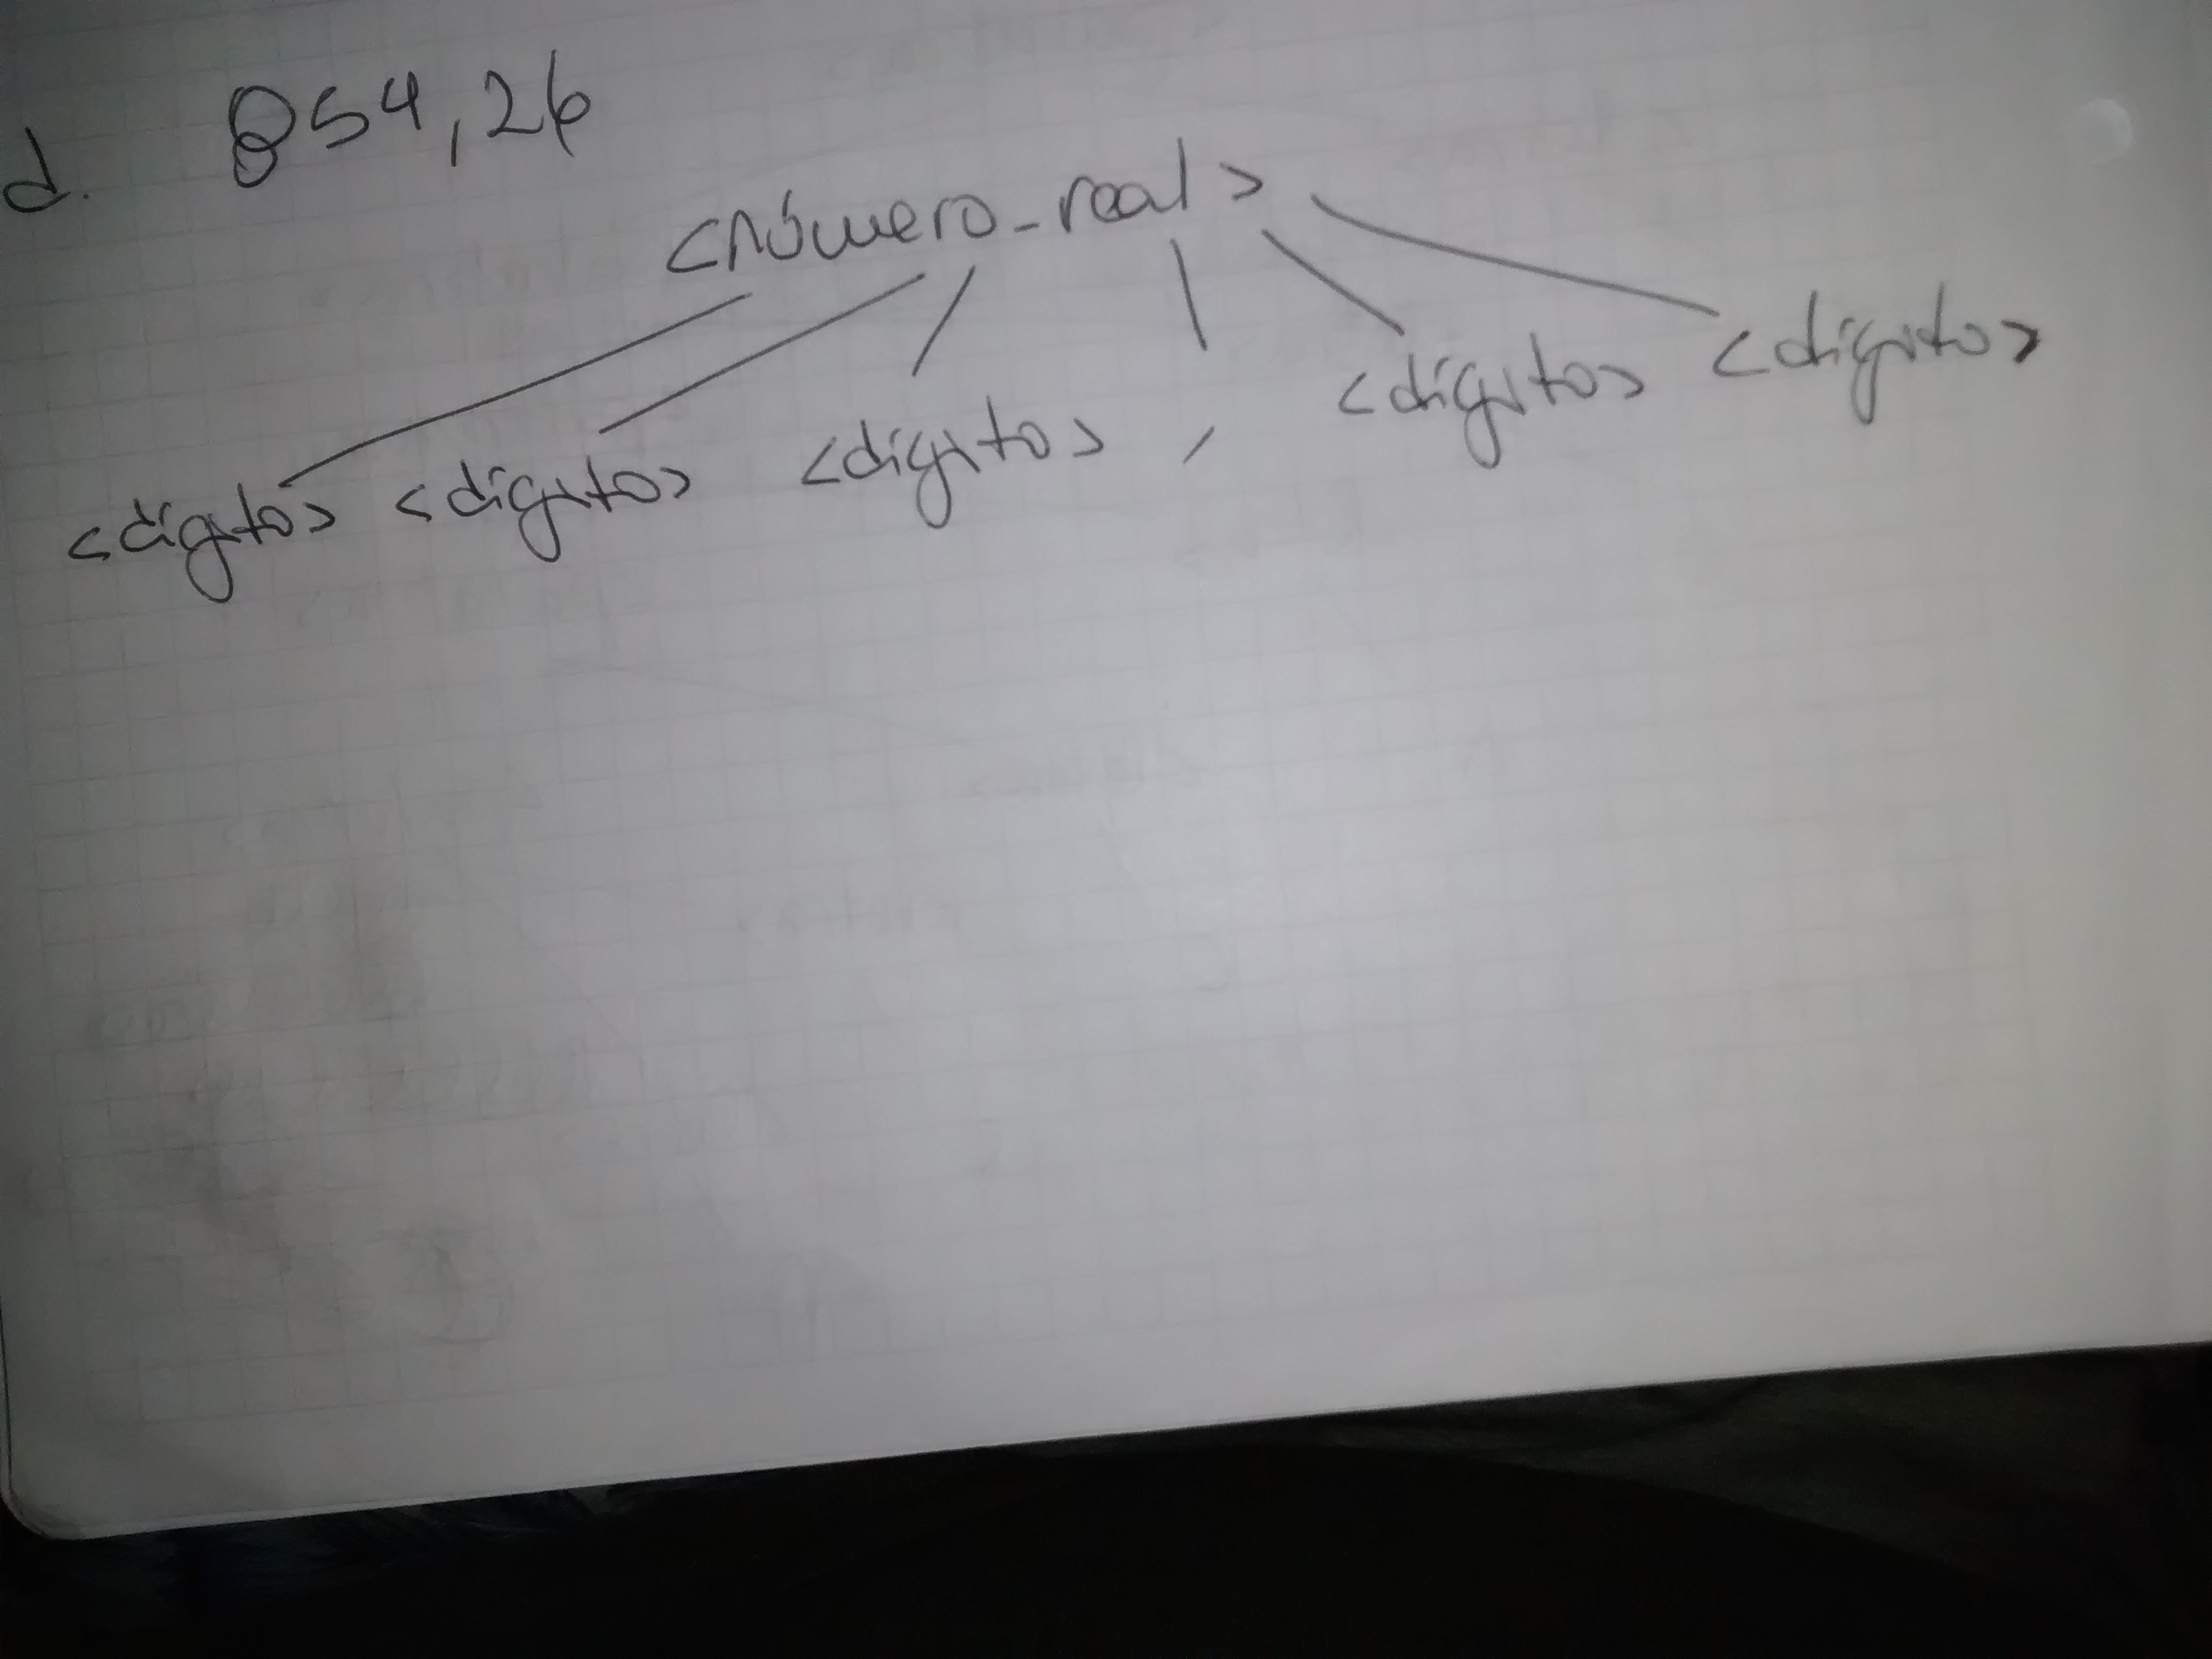 d. 854,26
<número_real>
<dígito> <dígito> <dígito> , <dígito> <dígito>